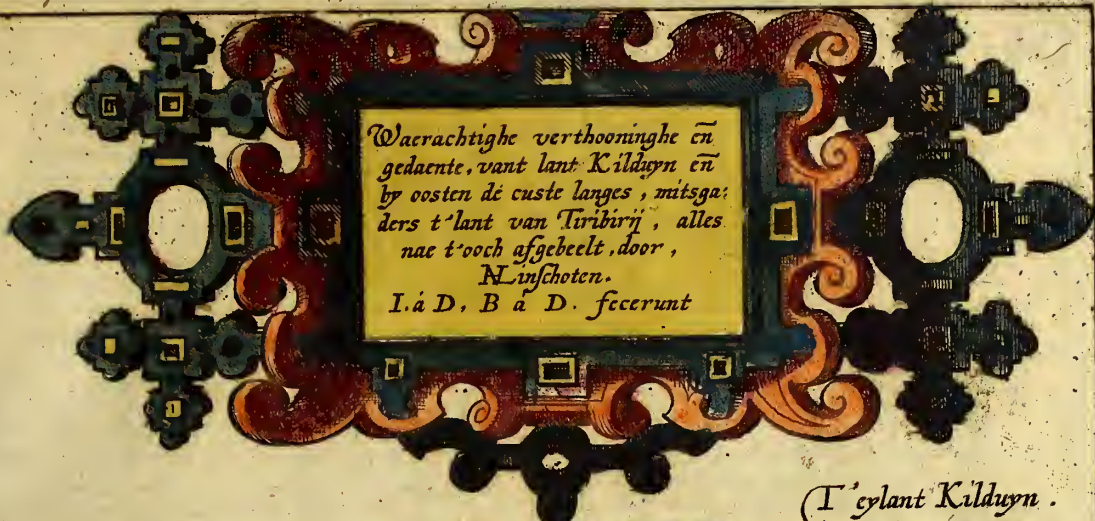 Waerachtighe verthooninghe en̄
gedaente, vant lant Kilduyn en̄
by oosten de custe langes, mitsga:
ders t'lant van Tiribirij, alles
nae t'ooch afgebeelt, door,
Linschoten.
I. à D, B à D. fecerunt
T'eylant Kilduyn.